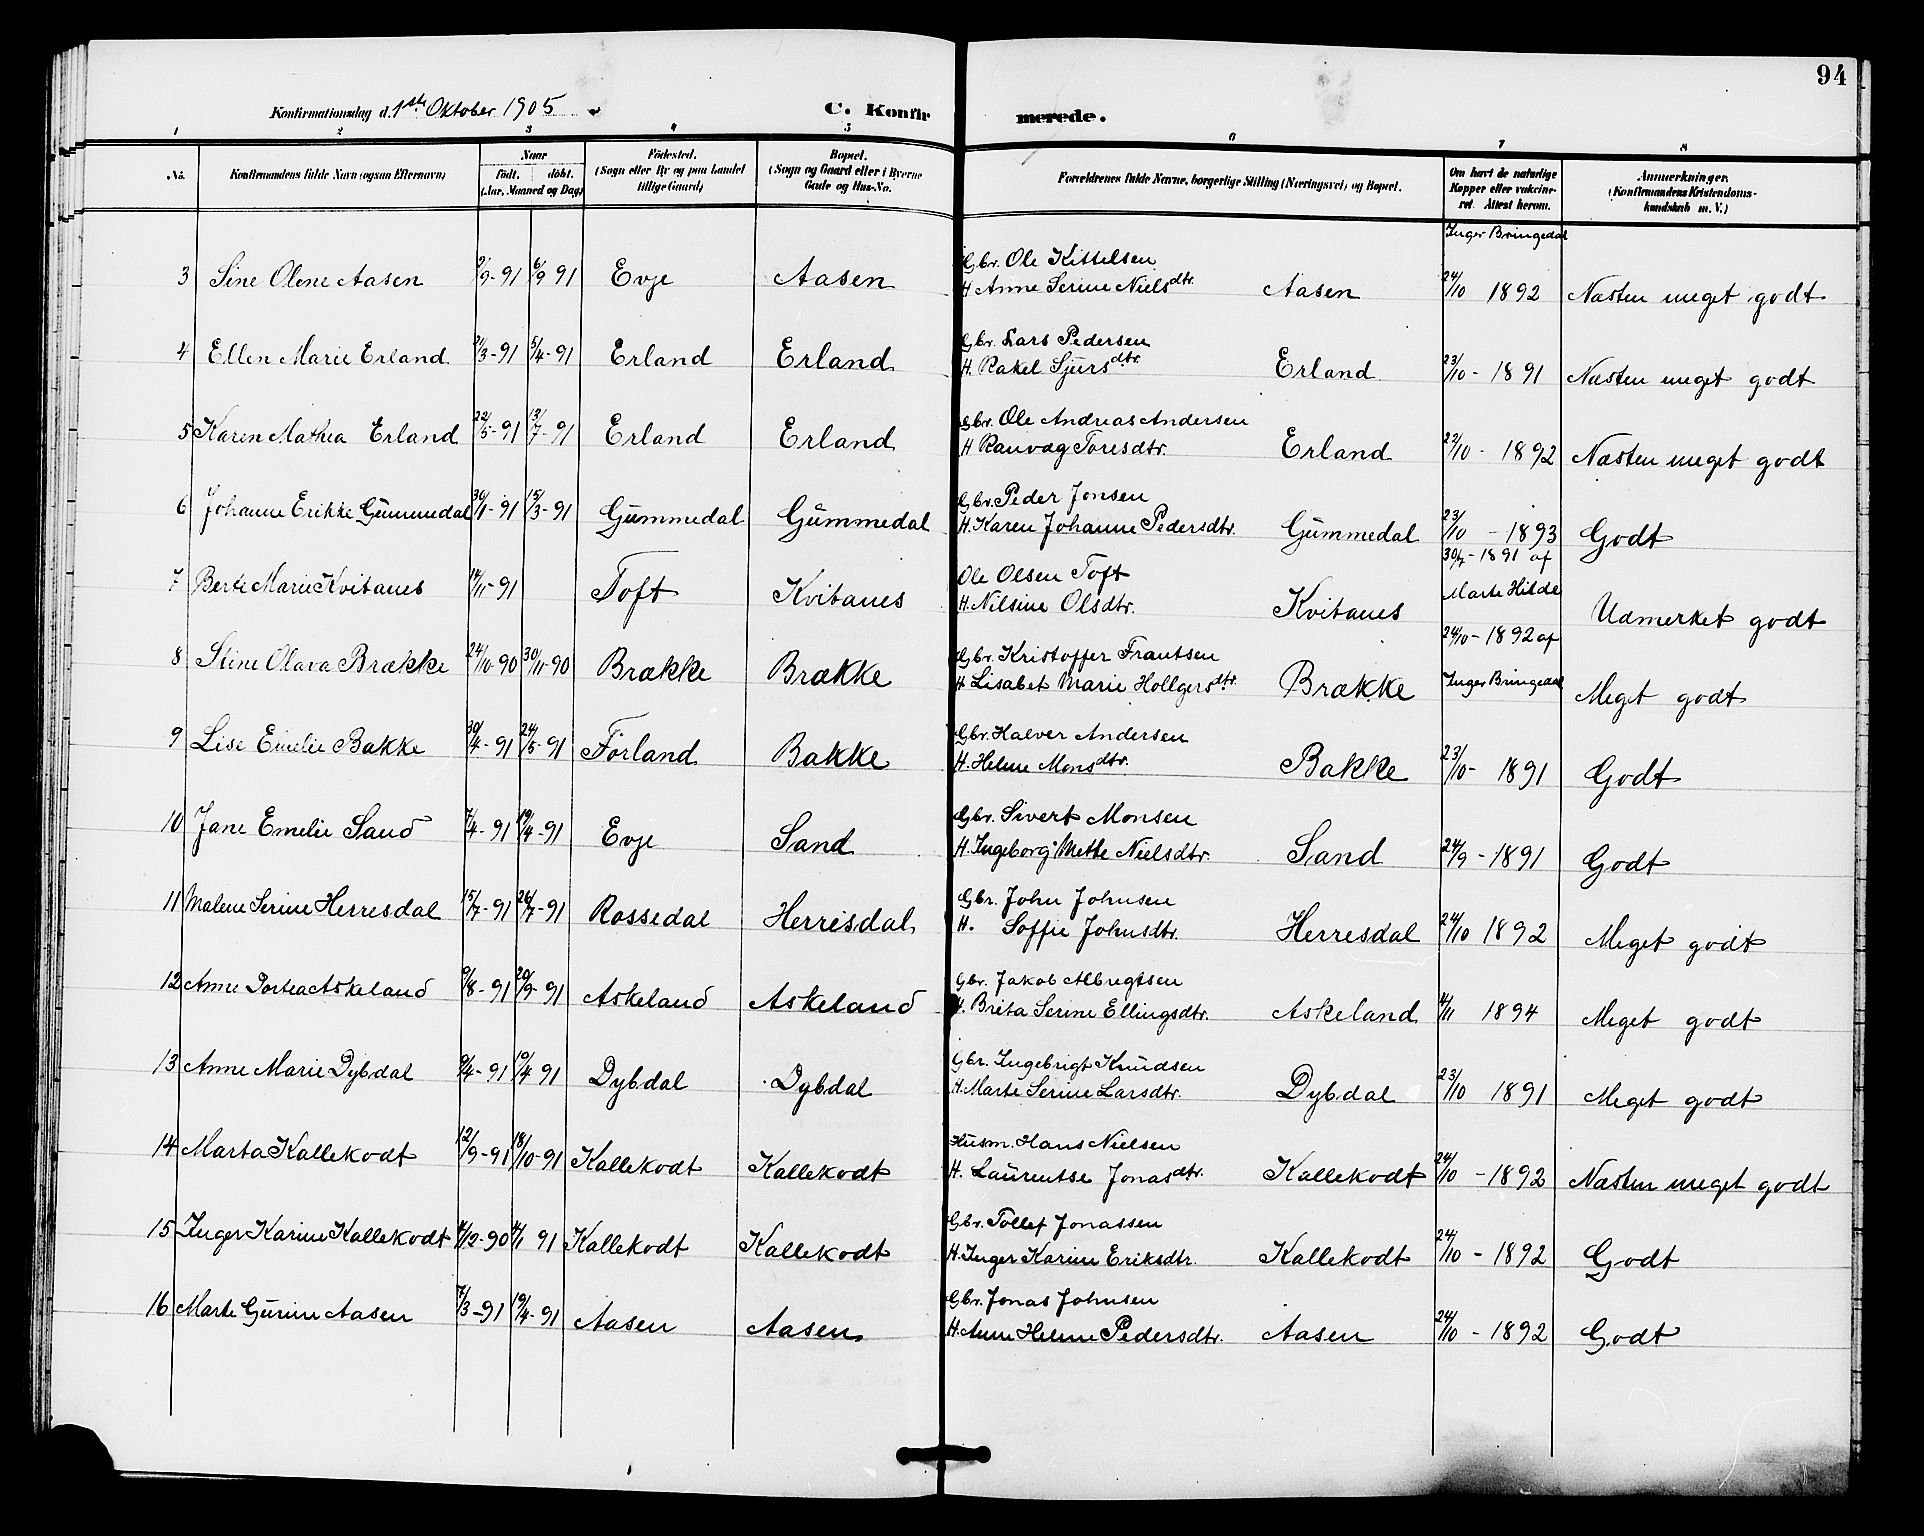 94
Konfirmationsdag d. 1ste Oktober 1905
C. Konfirmerede.
1 2 3 4 5 6 7 8
No. Konfirmandens fulde Navn (ogsaa Efternavn) Naar født. døbt. (Aar, Maaned og Dag) Fødested. (Sogn eller By og paa Landet tillige Gaard) Bopæl. (Sogn og Gaard eller i Byerne Gade og Hus-No. Forældrenes fulde Navne, borgerlige Stilling (Næringsvei) og Bopæl. Om havt de naturlige Kopper eller vakcineret. Attest herom. Anmerkninger. (Konfirmandens Kristendomskundskab m. V.)
Inger Bringedal
Gbr. Ole Kittelsen
3 Sine Olene Aasen 2/9-91 6/9 91 Evje Aasen H Anne Serine Nielsdtr. Aasen 24/10 1892 Næsten meget godt
Gbr. Lars Pedersen
4 Ellen Marie Erland 21/3-91 5/4-91 Erland Erland H. Rakel Sjursdtr. Erland 23/10-1891 Næsten meget godt
Gbr. Ole Andreas Andersen
5 Karen Mathea Erland 22/5-91 13/7-91 Erland Erland H Ranvag Toresdtr. Erland 22/10-1892 Næsten meget godt
Gbr. Peder Jonsen
6 Johanne Erikke Gummedal 30/1-91 15/3-91 Gummedal Gummedal H. Karen Johanne Pedersdtr. Gummedal 23/10-1893 Godt
30/7-1891 af
Ole Olsen Toft
7 Berte Marie Kvitanes 14/5-91 Toft Kvitanes H. Nilsine Olsdtr. Kvitanes Marte Hilde Udmerket godt
24/10-1892 af
Gbr. Kristoffer Frantsen
8 Stine Olava Brække 24/10-90 30/11-90 Brække Brække H Lisabet Marie Hollgersdtr. Brække Inger Bringedal Meget godt
Gbr. Halver Andersen
9 Lise Emelie Bakke 30/4-91 24/5-91 Førland Bakke H. Helene Monsdtr. Bakke 23/10-1891 Godt
Gbr. Sivert Monsen
10 Jane Emelie Sand 7/4-91 19/4-91 Evje Sand H. Ingeborg Mette Nielsdtr. Sand 24/9-1891 Godt
Gbr. John Johnsen
11 Malene Serine Herresdal 15/7-91 26/7-91 Rossedal Herresdal H. Soffie Johnsdtr. Herresdal 24/10 1892 Meget godt
Gbr. Jakob Albregtsen
12 Anne Dortea Askeland 9/8-91 20/9-91 Askeland Askeland H. Brita Serine Ellingsdtr. Askeland 4/11 1894 Meget godt
Gbr. Ingebrigt Knudsen
13 Anne Marie Dybdal 9/4-91 19/4 91 Dybdal Dybdal H. Marte Serine Larsdtr. Dybdal 23/10 1891 Meget godt
Husm. Hans Nielsen
14 Marta Kallekodt 12/9-91 18/10-91 Kallekodt Kallekodt H. Laurentse Jonasdtr. Kallekodt 24/10-1892 Næsten meget godt
Gbr. Tollef Jonassen
15 Inger Karine Kallekodt 4/12-90 4/1 91 Kallekodt Kallekodt H. Inger Karine Eriksdtr. Kallekodt 24/10-1892 Godt
Gbr. Jonas Johnsen
16 Marte Gurine Aasen 7/3-91 19/4-91 Aasen Aasen H. Anne Helene Pedersdtr. Aasen 24/10-1892 Godt